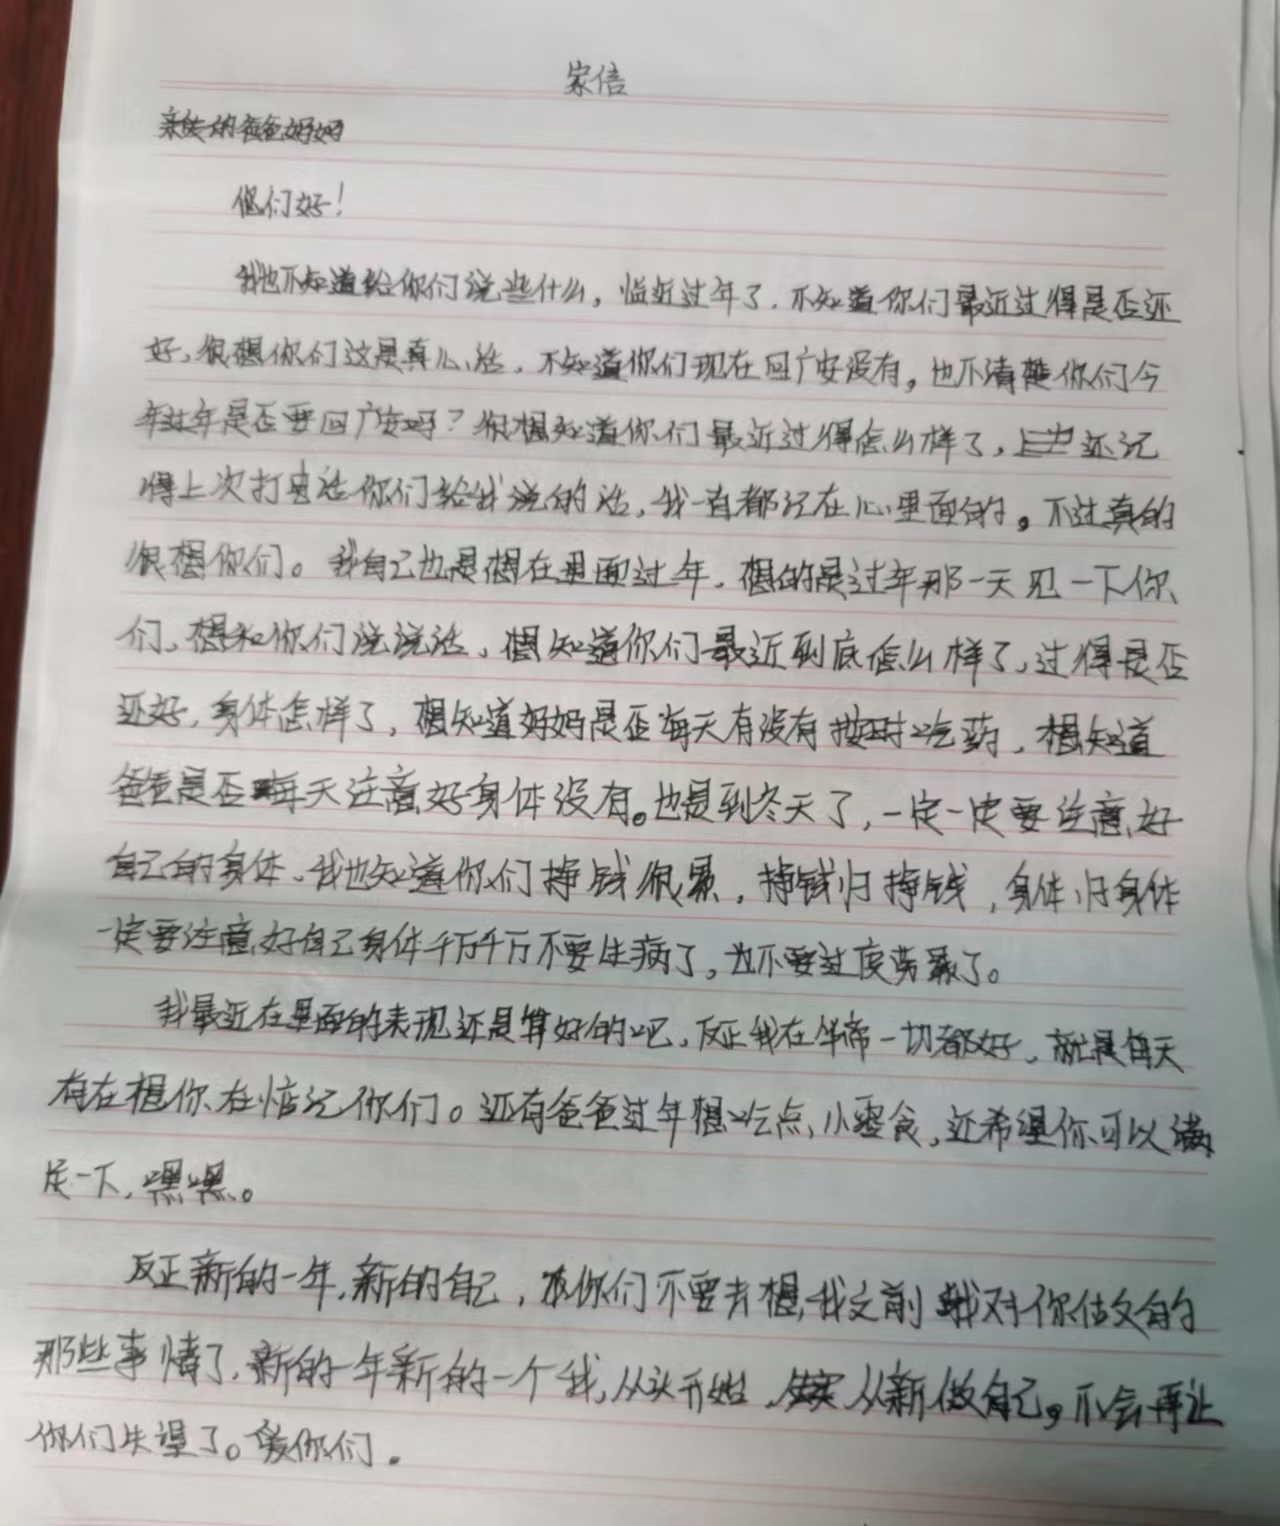 家信
亲爱的爸爸妈妈
你们好！
我也不知道给你们说些什么，临近过年了．不知道你们最近过得是否还
好，很想你们这是真心话，不知道你们现在回广安没有，也不清楚你们今
年过年是否要回广安吗？很想知道你们最近过得怎么样了，还记
得上次打电话你们给我说的话，我一直都记在心里面的。不过真的
很想你们。我自己也是想在里面过年，想的是过年那一天见一下你
们，想和你们说说话，想知道你们最近到底怎么样了，过得是否
还好，身体怎样了，想知道妈妈是否每天有没有按时吃药，想知道
爸爸是否每天注意好身体没有。也是到冬天了，一定一定要注意好
自己的身体、我也知道你们挣钱很累，挣钱归挣钱，身体归身体
一定要注意好自己身体千万千万不要生病了，也不要过度劳累了。
我最近在里面的表现还是算好的吧，反正我在一切都好，就是每天
有在想你在惦记你们。还有爸爸过年想吃点小零食，还希望你可以满
足一下，嘿嘿。
反正新的一年，新的自己，你们不要去想我之前我对你做的
那些事情了，新的一年新的一个我，从头开始，从新做自己。不会再让
你们失望了。爱你们．